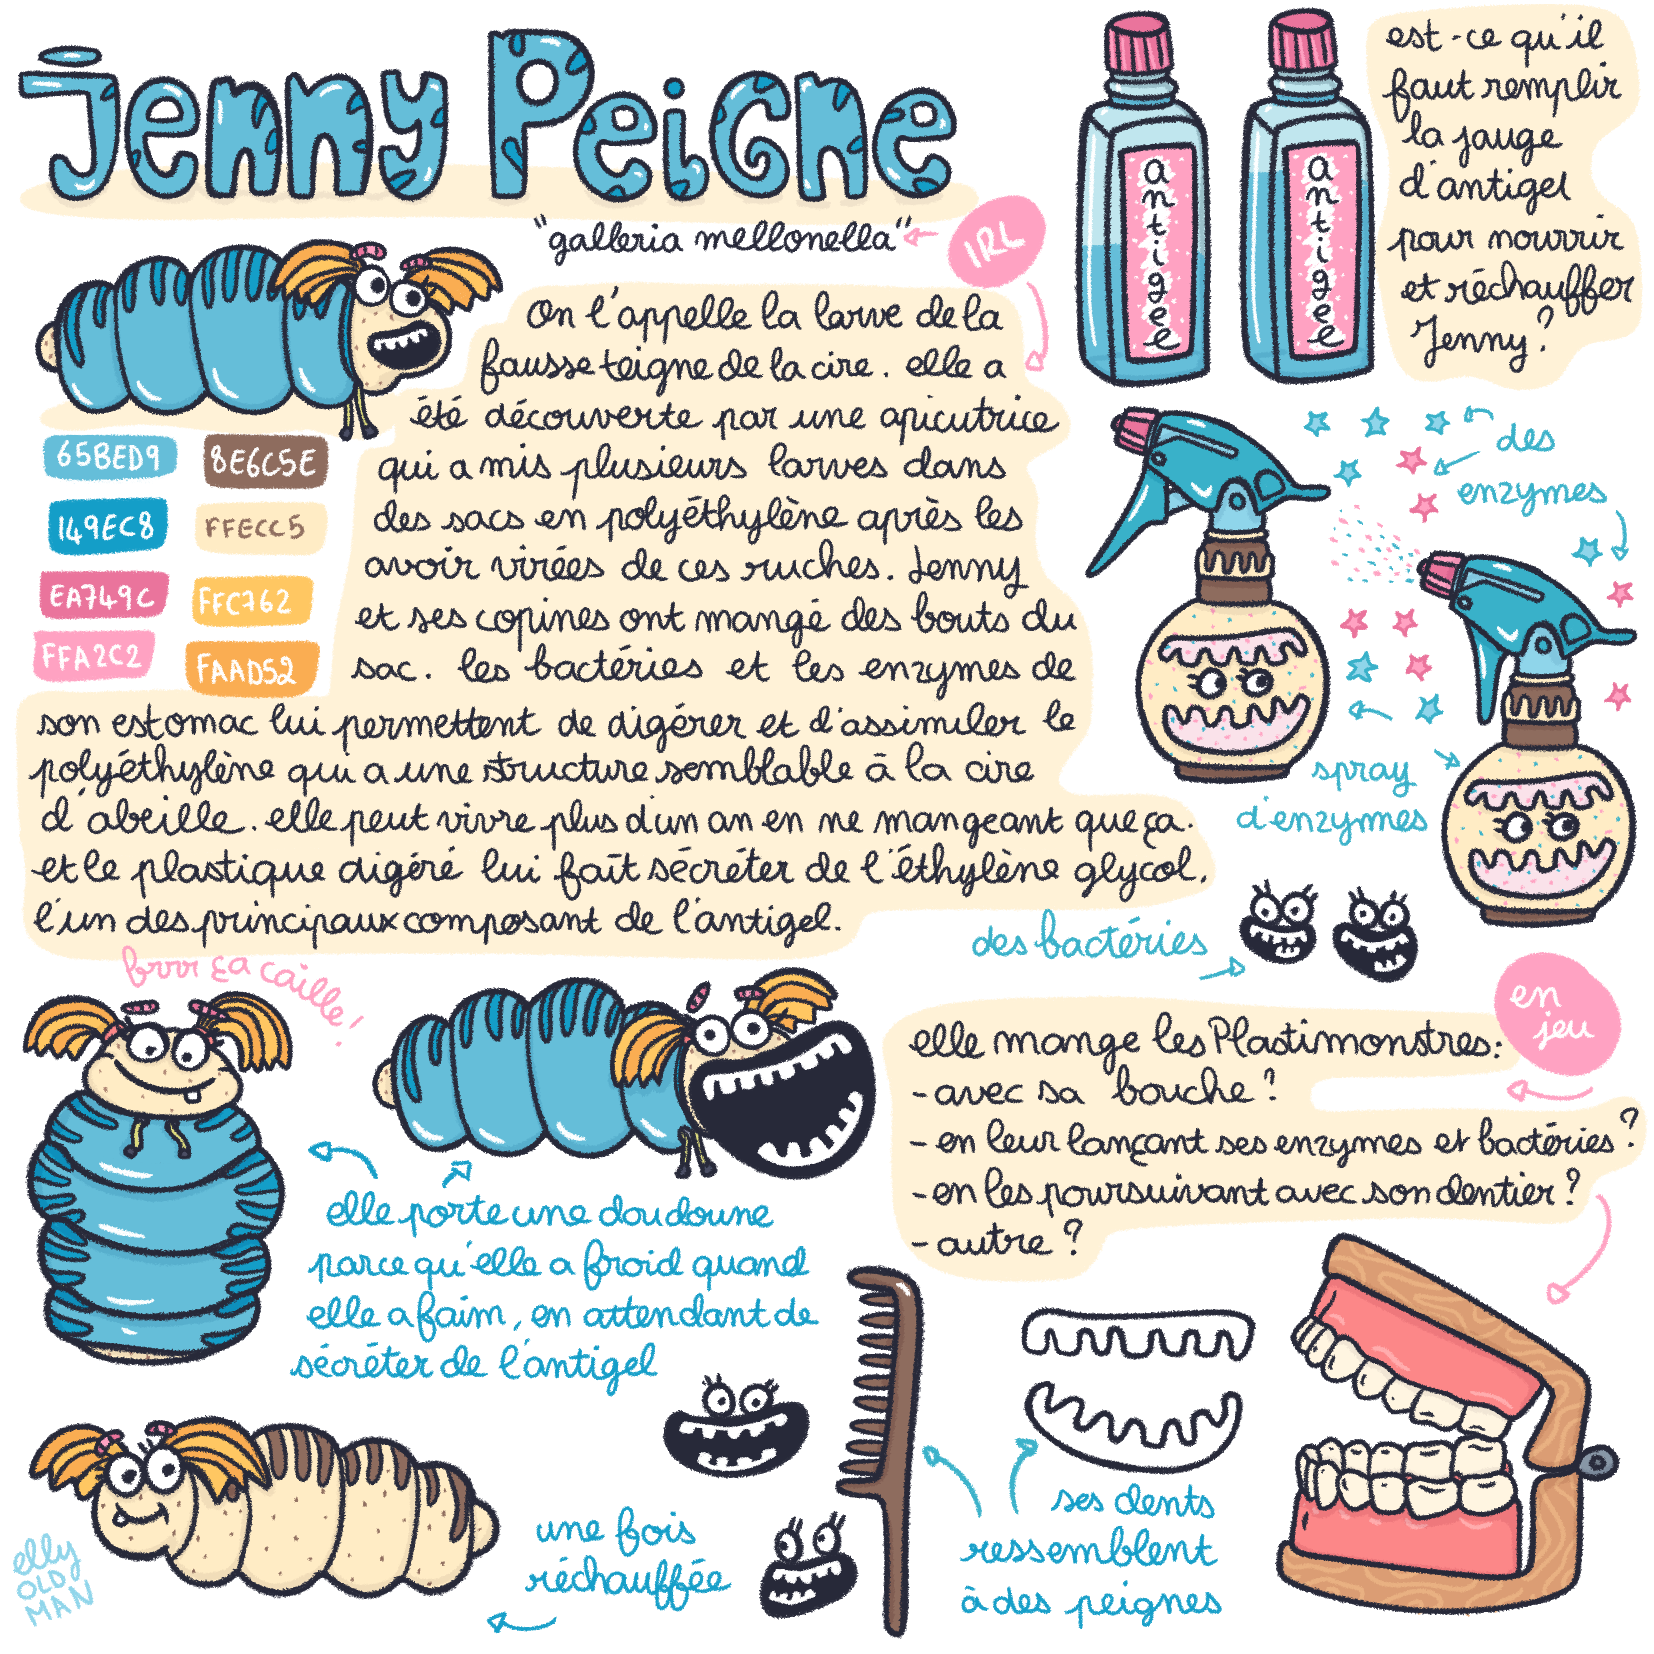 Jenny Peigne
"galleria mellonella"
IRL
On l'appelle la larve de la
fausse teigne de la cire. elle a
été découverte par une apicutrice
qui a mis plusieurs larves dans
des sacs en polyéthylène après les
avoir virées de ces ruches. Jenny
et ses copines ont mangé des bouts du
sac. les bactéries et les enzymes de
son estomac lui permettent de digérer et d'assimiler le
polyéthylène qui a une structure semblable à la cire
d'abeille. elle peut vivre plus d'un an en ne mangeant que ça.
et le plastique digéré lui fait sécréter de l'éthylène glycol,
l'un des principaux composant de l'antigel.
65BED9
8E6C5E
149EC8
FFECC5
EA749C
FFC762
FFA2C2
FAAD52
antigel
antigel
est-ce qu'il
faut remplir
la jauge
d'antigel
pour nourrir
et réchauffer
Jenny?
des
enzymes
spray
d'enzymes
des bactéries
brrr ça caille!
en
jeu
elle mange les Plastimonstres:
- avec sa bouche?
- en leur lançant ses enzymes et bactéries?
- en les poursuivant avec son dentier?
- autre?
elle porte une doudoune
parce qu'elle a froid quand
elle a faim, en attendant de
sécréter de l'antigel
une fois
réchauffée
ses dents
ressemblent
à des peignes
elly
OLD
MAN